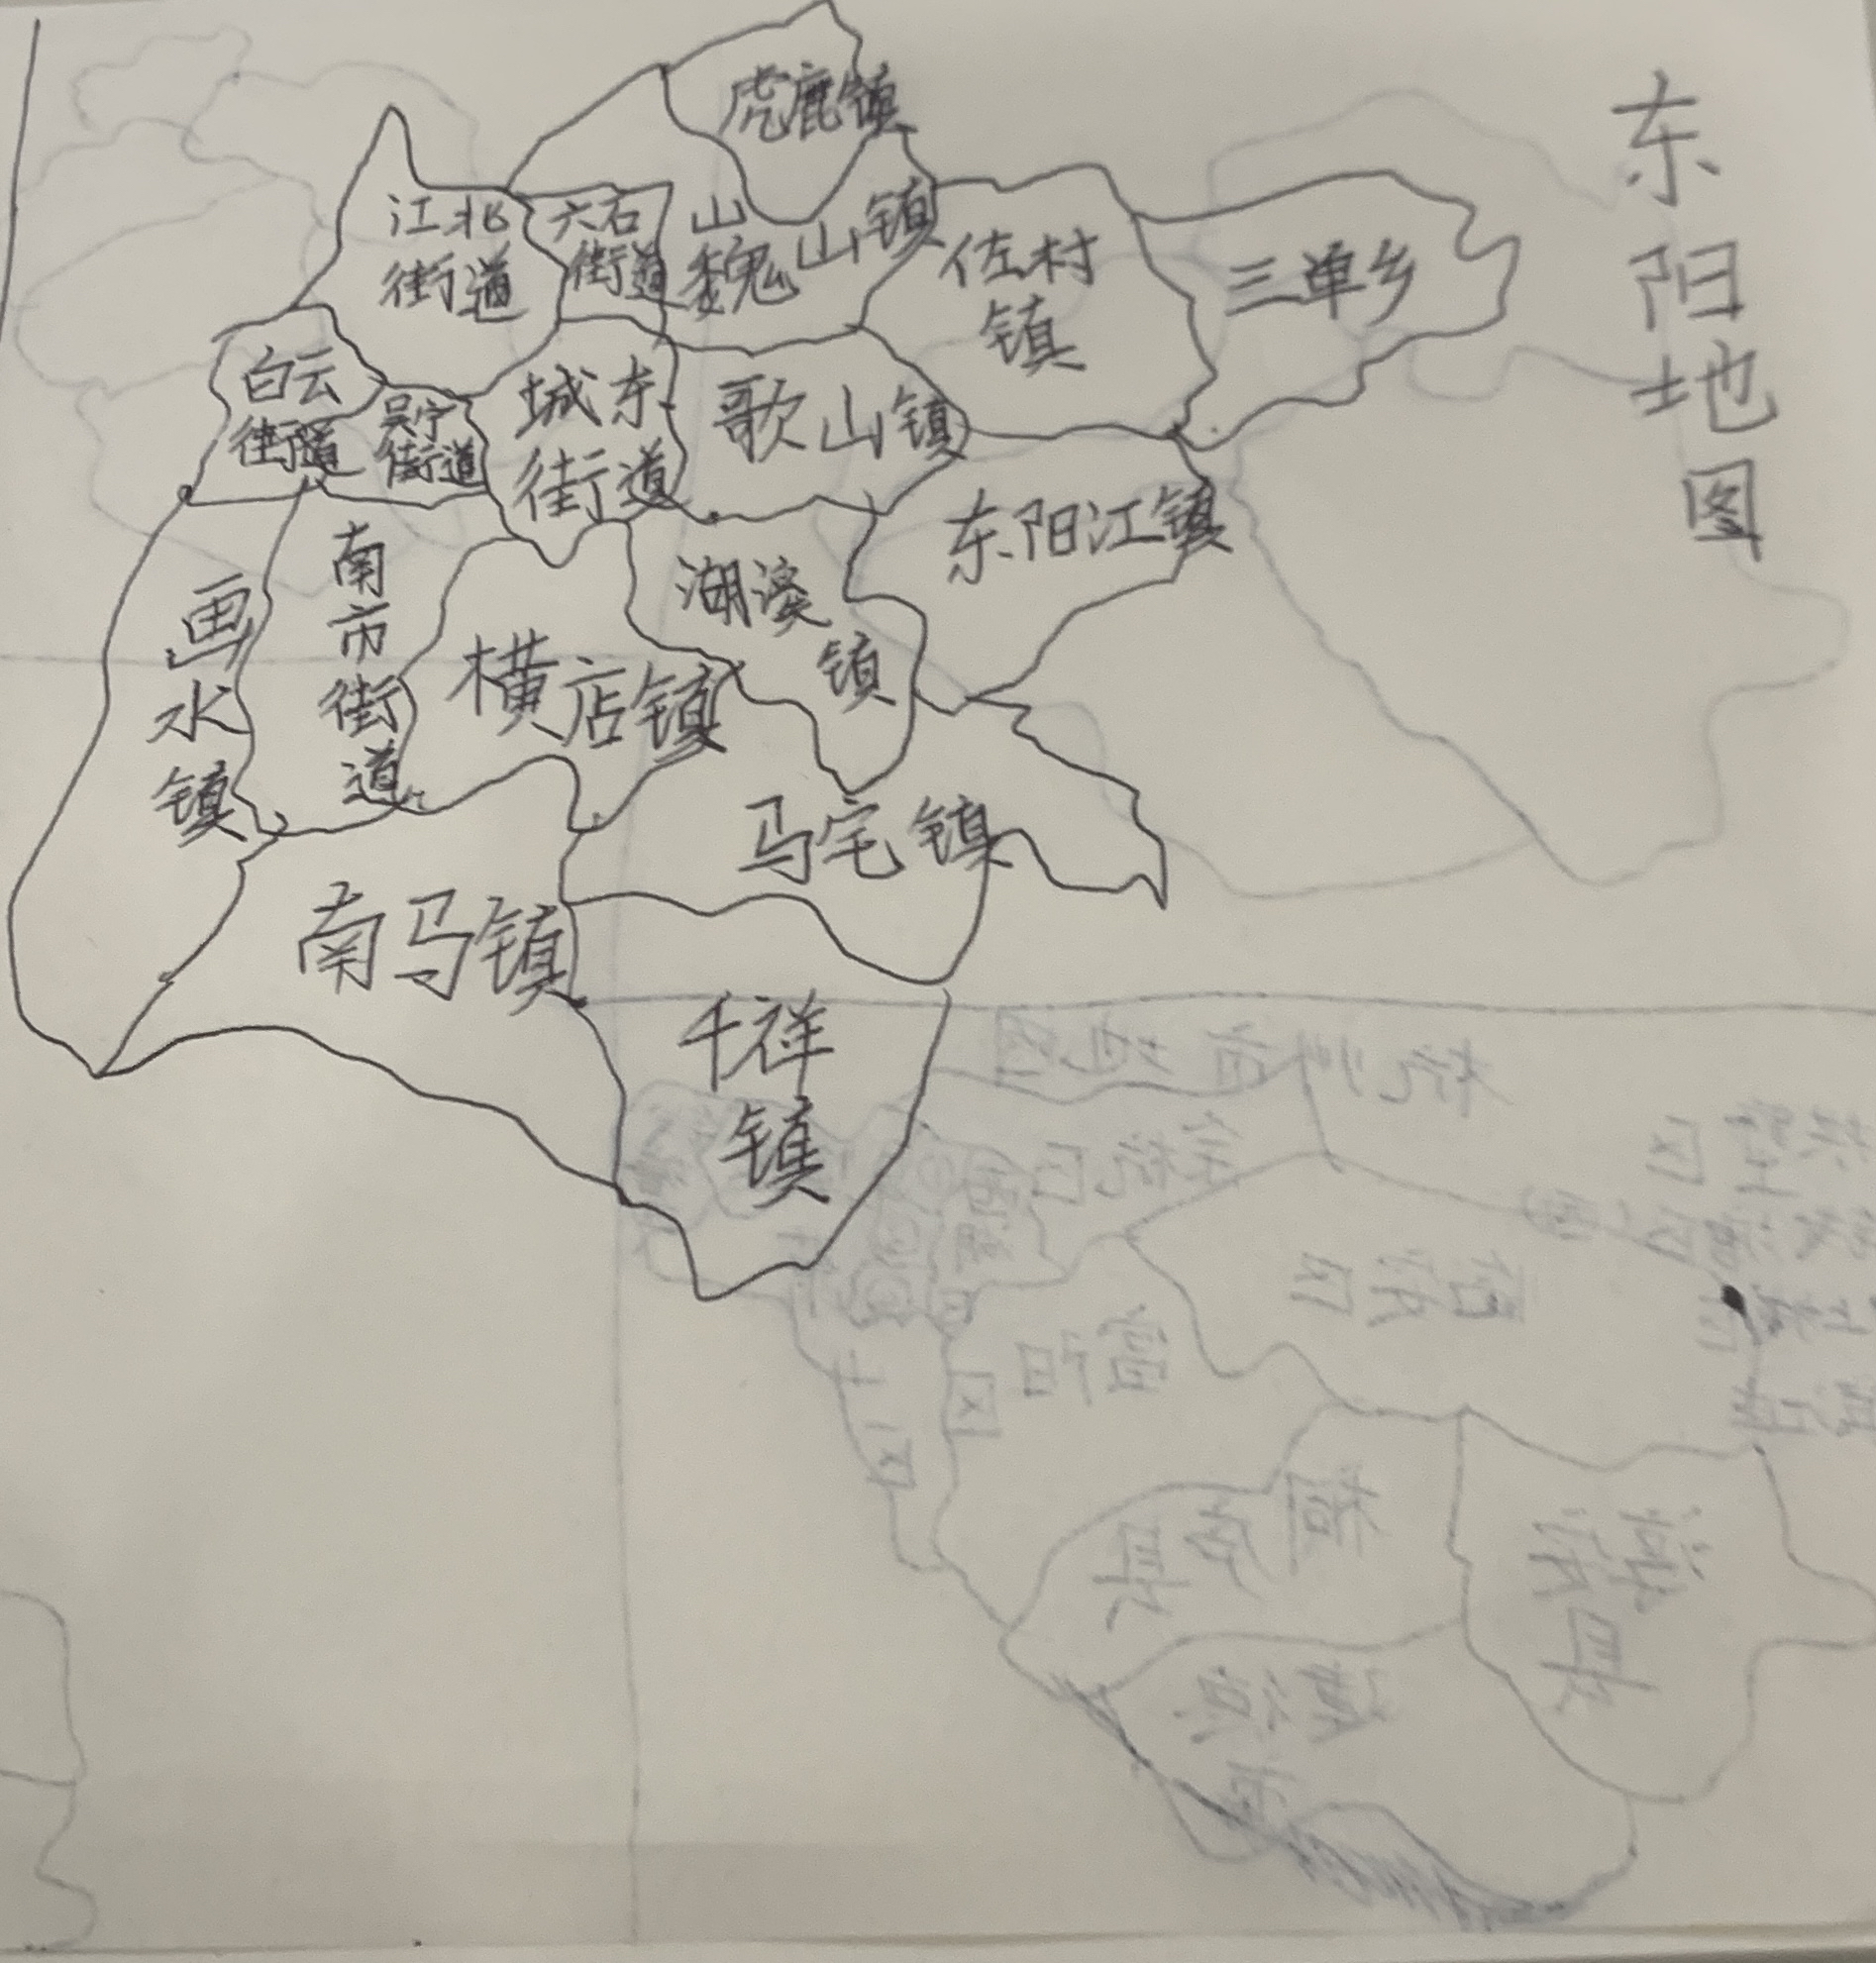 东阳地图
虎鹿镇
江北
街道
六石
街道
山
魏山镇
佐村
镇
三单乡
白云
街道
吴宁
街道
城东
街道
歌山镇
东阳江镇
画水镇
南市街道
横店镇
湖溪
镇
马宅镇
南马镇
千祥
镇
杭州市地图
余杭区
临安
区
富阳
区
桐庐
县
淳安
县
建德
市